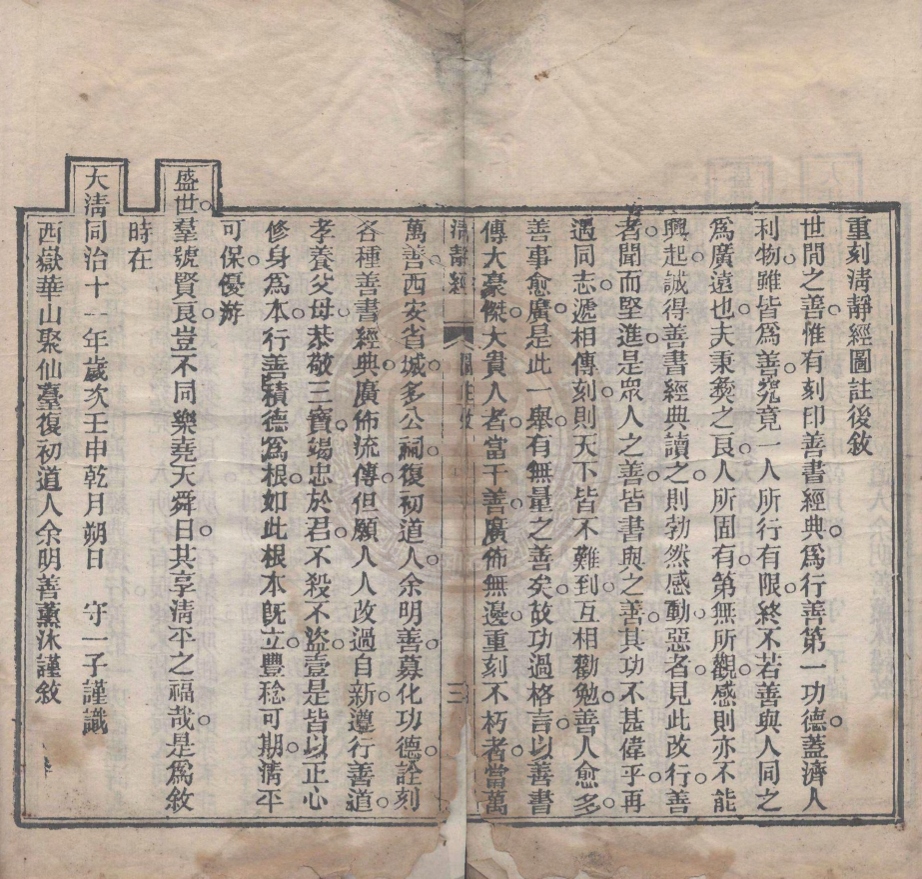 重刻淸靜經圖註後敘
世間之善惟有刻印善書經典爲行善第一功德蓋濟人
利物雖皆爲善究竟一人所行有限終不若善與人同之
爲廣遠也夫秉彜之良人所固有第無所觀感則亦不能
興起誠得善書經典讀之則勃然感動惡者見此改行善
者聞而堅進是眾人之善皆書與之善其功不甚偉乎再
遇同志遞相傳刻則天下皆不難到互相勸勉善人愈多
善事愈廣是此一舉有無量之善矣故功過格言以善書
傳大豪傑大貴人者當千善廣佈無邊重刻不朽者當萬
淸靜經 圖註敘 三
萬善西安省城多公祠復初道人余明善募化功德詮刻
各種善書經典廣佈流傳但願人人改過自新遵行善道
孝養父母恭敬三寶竭忠於君不殺不盜壹是皆以正心
修身爲本行善積德爲根如此根本旣立豐稔可期淸平
可保優游
盛世羣號賢良豈不同樂堯天舜日共享淸平之福哉是爲敘
時在
大淸同治十一年歲次壬申乾月朔日 守一子謹識
西嶽華山聚仙臺復初道人余明善薰沐謹敘